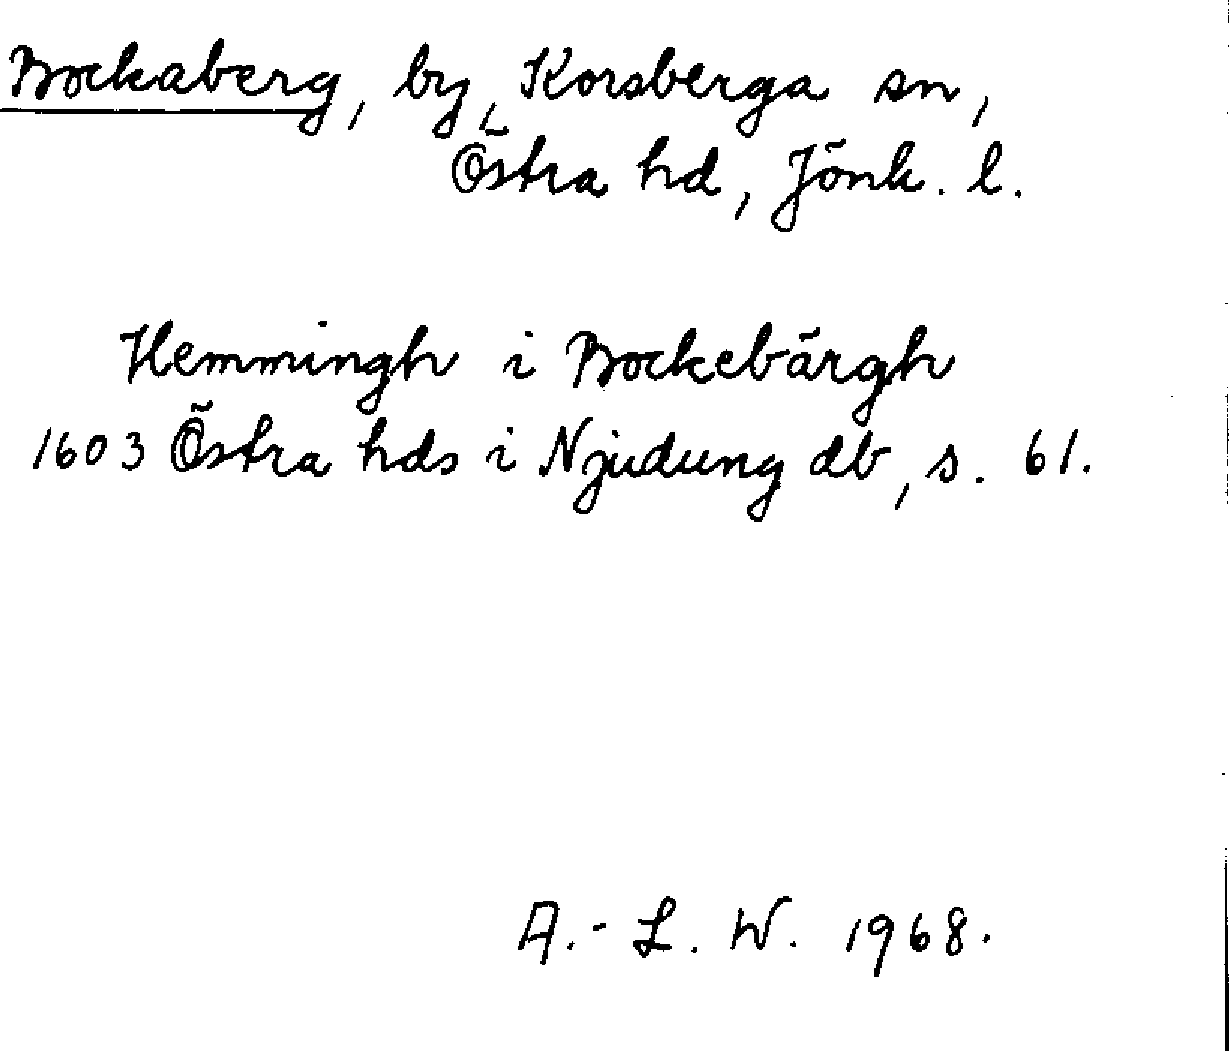 Bockaberg, by, Korsberga sn,
Östra hd, Jönk. l.
Hemmingh i Bockebärgh
1603 Östra hds i Njudung db, s. 61.
A.-L. W. 1968.